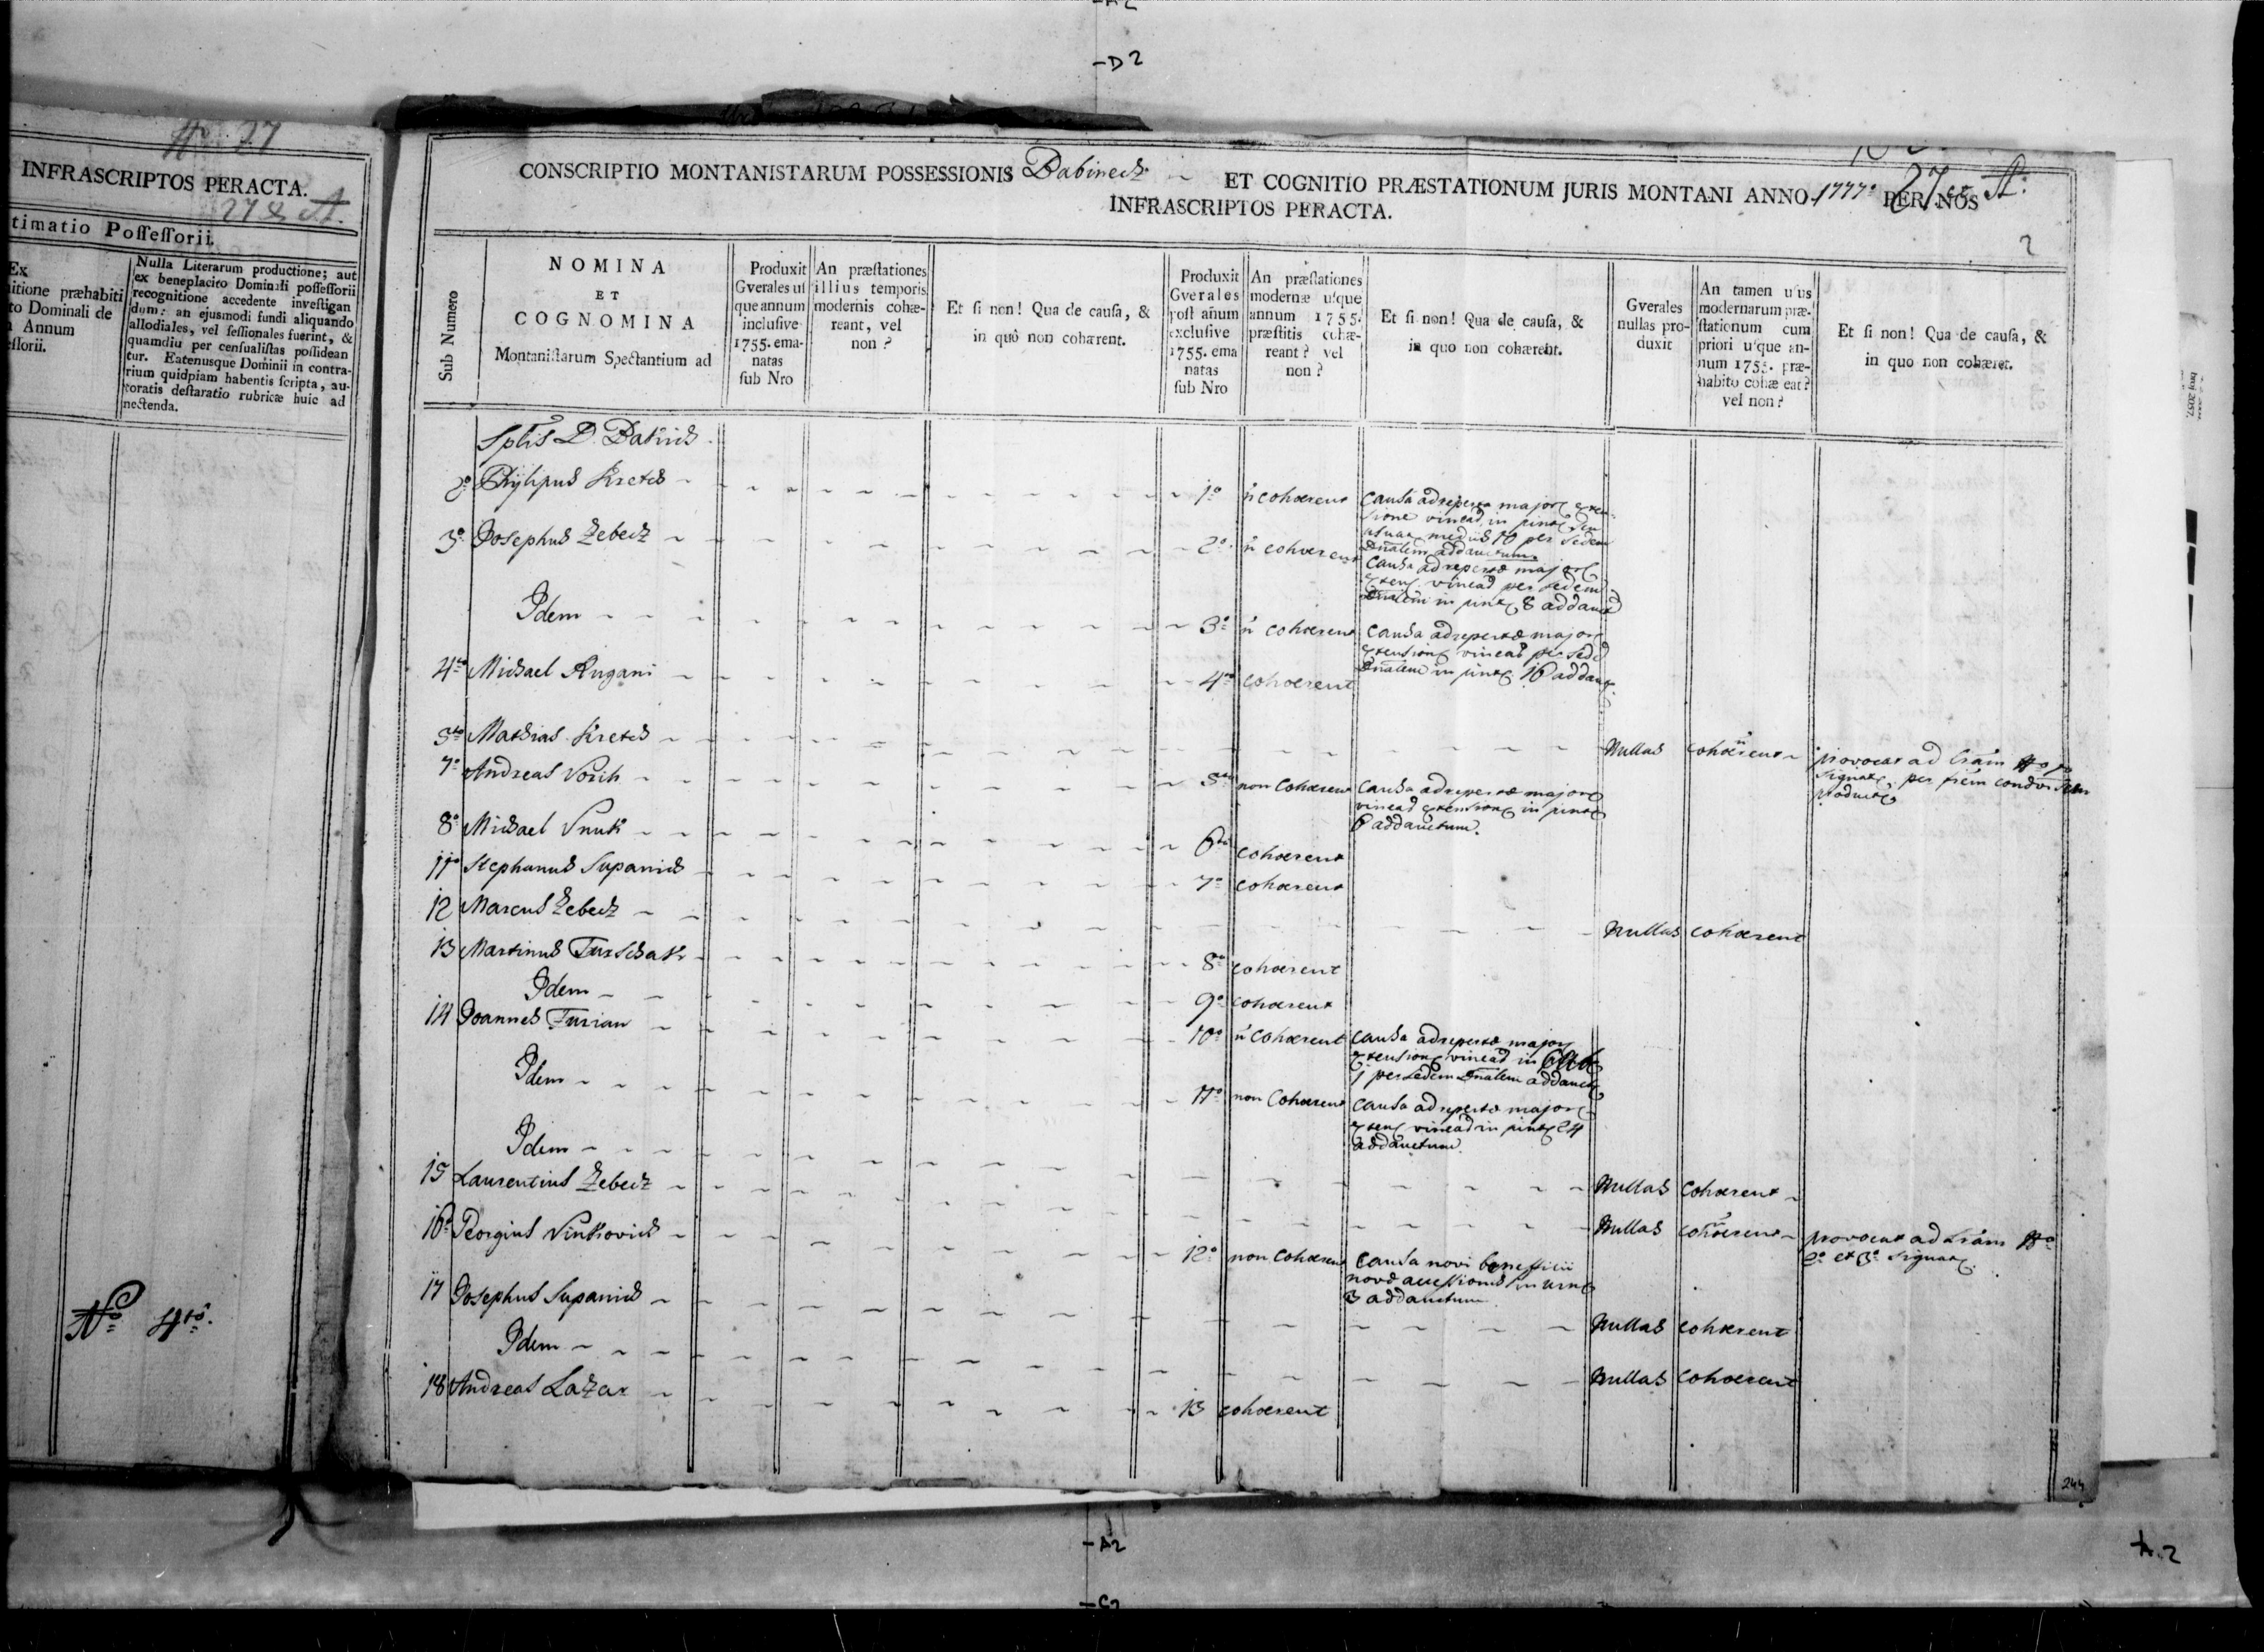 -D2
No. 27
INFRASCRIPTOS PERACTA.
27 & A.
timatio Poſſeſſorii.
Ex
nitione præhabiti
to Dominali de
Annum
eſſorii.
Nulla Literarum productione; aut
ex beneplacito Dominali poſſeſſorii
recognitione accedente inveſtigan
dum: an ejusmodi fundi aliquando
allodiales, vel ſeſſionales fuerint, &
quamdiu per cenſualiſtas poſſidean
tur. Eatenusque Dominii in contra-
rium quidpiam habentis ſcripta, au-
toratis deſtaratio rubricæ huic ad
nectenda.
No 4to.
CONSCRIPTIO MONTANISTARUM POSSESSIONIS Babinecz ET COGNITIO PRÆSTATIONUM JURIS MONTANI ANNO 1777o PER NOS
INFRASCRIPTOS PERACTA.
27 et A:
2
Sub Numero
NOMINA
ET
COGNOMINA
Montaniſtarum Spectantium ad
Produxit
Gverales uſ
que annum
incluſive
1755. ema-
natas
ſub Nro
An præſtationes
illius temporis
modernis cohæ-
reant, vel
non?
Et ſi non! Qua de cauſa, &
in quô non cohærent.
Produxit
Gverales
poſt añum
excluſive
1755. ema
natas
ſub Nro
An præſtationes
modernæ uſque
annum 1755.
præſtitis cohæ-
reant? vel
non?
Et ſi non! Qua de cauſa, &
in quo non cohærent.
Gverales
nullas pro-
duxit
An tamen uſus
modernarum præ-
ſtationum cum
priori uſque an-
num 1755. præ-
habito cohæreat?
vel non?
Et ſi non! Qua de cauſa, &
in quo non cohæret.
Splis D. Patius
2o Phylipus Kretes 1o ñ cohærent causa adreperta major exten
sione vinead in pint seu
medius 10 per sedem
Dnalem addauctum
3o Josephus Zebecz 2o ñ cohærent causa adrepertæ major
extens vinead per sedem
Dnalem in pint 8 addauct
Idem 3o ñ cohærent causa adrepertæ major
extension vinead per sede
Dnalem in pint 16 addauct
4to Michael Rugani 4to cohærent
5to Mathias Kretes Nullas ñ cohærent provocat ad Lram No 1o
signat per
product
7o Andreas Vorih 5to non cohærent causa adrepertæ major
vinead extension in pint
6 addauctum.
8o Michael Vnuk 6to cohærent
11o Stephanus Supanich 7o cohærent
12 Marcus Zebecz Nullas cohærent
13 Martinus Turschak 8o cohærent
Idem 9o cohærent
14 Joannes Turian 10o ñ cohærent causa adrepertæ major
extension vinead in
1 per sedem Dnalem addauct
Idem 11o non cohærent causa adrepertæ major
extens vinead in pint 24
addauctum.
Idem Nullas cohærent
15 Laurentius Zebecz Nullas ñ cohærent provocat ad Lram No
2o et 3o signat
16o Georgius Vinkovich 12o non cohærent causa novi benefficii
novæ accessionis in urn
3 addauctum
17 Josephus Supanich Nullas cohærent
Idem Nullas cohærent
18 Andreas Lazar 13 cohærent
244
-A2
A.2
-C2